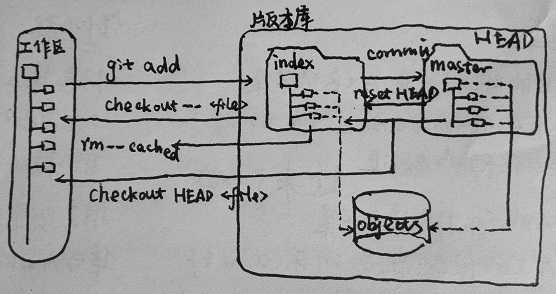 工作区
版本库
HEAD
index
master
git add
commit
checkout -- <file>
reset HEAD
rm --cached
checkout HEAD <file>
objects